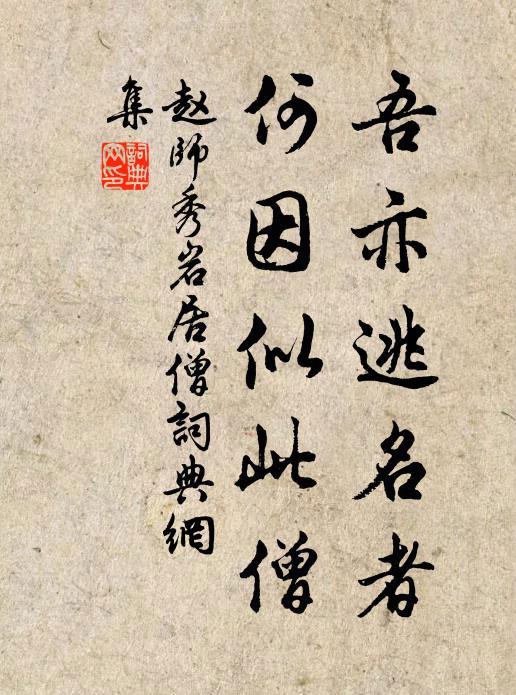 吾亦逃名者
何因似此僧
赵師秀岩居僧詞典網
集
詞典
网印